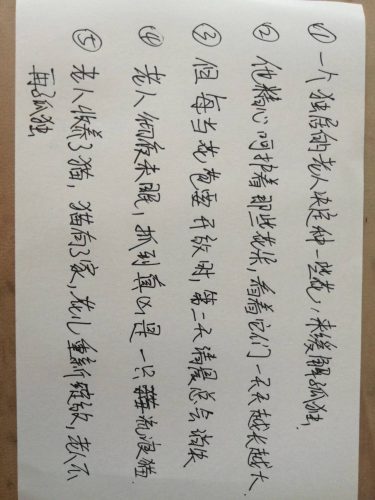 ① 一个独居的老人决定种一些花,来缓解孤独.
② 他精心呵护着那些花朵,看着它们一天天越长越大.
③ 但每当花苞要开放时,第二天清晨总会消失
④ 老人彻夜未眠,抓到真凶是一只流浪猫.
⑤ 老人收养了猫,猫有了家,花儿重新绽放,老人不
再孤独